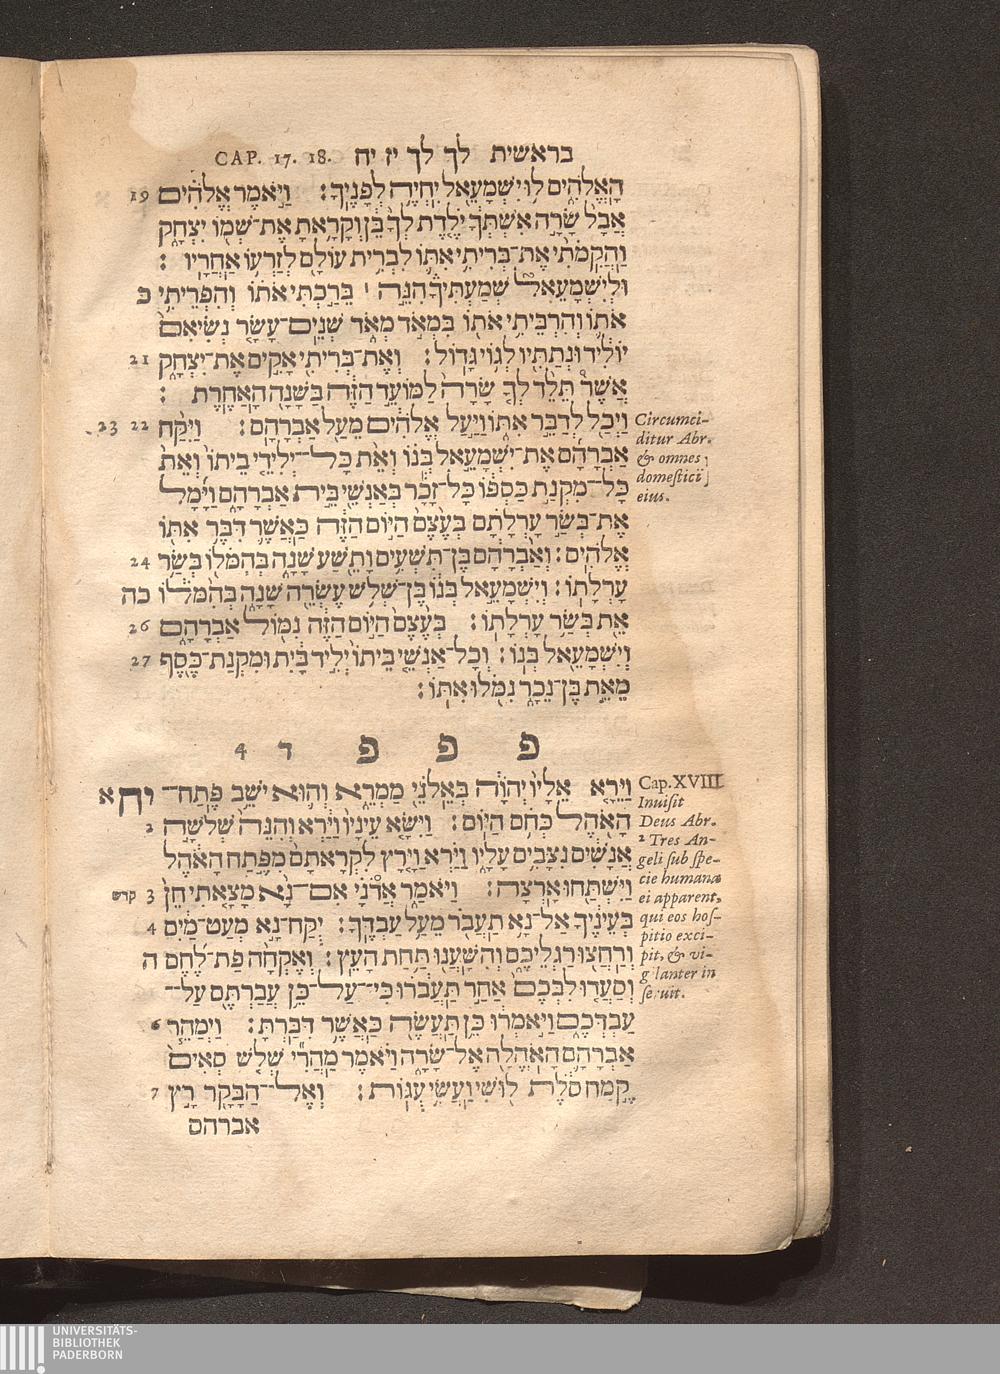 CAP. 17. 18. בראשית לך לך יז יח
הָאֱלֹהִים לוּ יִשְׁמָעֵאל יִחְיֶה לְפָנֶיךָ׃ וַיֹּאמֶר אֱלֹהִים 19
אֲבָל שָׂרָה אִשְׁתְּךָ יֹלֶדֶת לְךָ בֵּן וְקָרָאתָ אֶת־שְׁמוֹ יִצְחָק
וַהֲקִמֹתִי אֶת־בְּרִיתִי אִתּוֹ לִבְרִית עוֹלָם לְזַרְעוֹ אַחֲרָיו׃
וּלְיִשְׁמָעֵאל שְׁמַעְתִּיךָ הִנֵּה ׀ בֵּרַכְתִּי אֹתוֹ וְהִפְרֵיתִי כ
אֹתוֹ וְהִרְבֵּיתִי אֹתוֹ בִּמְאֹד מְאֹד שְׁנֵים־עָשָׂר נְשִׂיאִם
יוֹלִיד וּנְתַתִּיו לְגוֹי גָּדוֹל׃ וְאֶת־בְּרִיתִי אָקִים אֶת־יִצְחָק 21
אֲשֶׁר תֵּלֵד לְךָ שָׂרָה לַמּוֹעֵד הַזֶּה בַּשָּׁנָה הָאַחֶרֶת׃
וַיְכַל לְדַבֵּר אִתּוֹ וַיַּעַל אֱלֹהִים מֵעַל אַבְרָהָם׃ וַיִּקַּח 22 23
אַבְרָהָם אֶת־יִשְׁמָעֵאל בְּנוֹ וְאֵת כָּל־יְלִידֵי בֵיתוֹ וְאֵת
כָּל־מִקְנַת כַּסְפּוֹ כָּל־זָכָר בְּאַנְשֵׁי בֵּית אַבְרָהָם וַיָּמָל
אֶת־בְּשַׂר עָרְלָתָם בְּעֶצֶם הַיּוֹם הַזֶּה כַּאֲשֶׁר דִּבֶּר אִתּוֹ
אֱלֹהִים׃ וְאַבְרָהָם בֶּן־תִּשְׁעִים וָתֵשַׁע שָׁנָה בְּהִמֹּלוֹ בְּשַׂר 24
עָרְלָתוֹ׃ וְיִשְׁמָעֵאל בְּנוֹ בֶּן־שְׁלֹשׁ עֶשְׂרֵה שָׁנָה בְּהִמֹּלוֹ כה
אֵת בְּשַׂר עָרְלָתוֹ׃ בְּעֶצֶם הַיּוֹם הַזֶּה נִמּוֹל אַבְרָהָם 26
וְיִשְׁמָעֵאל בְּנוֹ׃ וְכָל־אַנְשֵׁי בֵיתוֹ יְלִיד בָּיִת וּמִקְנַת־כֶּסֶף 27
מֵאֵת בֶּן־נֵכָר נִמֹּלוּ אִתּוֹ׃
Circumci-
ditur Abr.
& omnes
domestici
eius.
פ פ פ ד 4
וַיֵּרָא אֵלָיו יְהוָֹה בְּאֵלֹנֵי מַמְרֵא וְהוּא יֹשֵׁב פֶּתַח־ יח א
הָאֹהֶל כְּחֹם הַיּוֹם׃ וַיִּשָּׂא עֵינָיו וַיַּרְא וְהִנֵּה שְׁלֹשָׁה 2
אֲנָשִׁים נִצָּבִים עָלָיו וַיַּרְא וַיָּרָץ לִקְרָאתָם מִפֶּתַח הָאֹהֶל
וַיִּשְׁתַּחוּ אָרְצָה׃ וַיֹּאמַר אֲדֹנָי אִם־נָא מָצָאתִי חֵן 3 קדש
בְּעֵינֶיךָ אַל־נָא תַעֲבֹר מֵעַל עַבְדֶּךָ׃ יֻקַּח־נָא מְעַט־מַיִם 4
וְרַחֲצוּ רַגְלֵיכֶם וְהִשָּׁעֲנוּ תַּחַת הָעֵץ׃ וְאֶקְחָה פַת־לֶחֶם ה
וְסַעֲדוּ לִבְּכֶם אַחַר תַּעֲבֹרוּ כִּי־עַל־כֵּן עֲבַרְתֶּם עַל־
עַבְדְּכֶם וַיֹּאמְרוּ כֵּן תַּעֲשֶׂה כַּאֲשֶׁר דִּבַּרְתָּ׃ וַיְמַהֵר 6
אַבְרָהָם הָאֹהֱלָה אֶל־שָׂרָה וַיֹּאמֶר מַהֲרִי שְׁלֹשׁ סְאִים
קֶמַח סֹלֶת לוּשִׁי וַעֲשִׂי עֻגוֹת׃ וְאֶל־הַבָּקָר רָץ 7
אברהם
Cap. XVIII
Inuisit
Deus Abr.
2 Tres An-
geli sub spe-
cie humana
ei apparent,
qui eos hos-
pitio exci-
pit, & vi-
gilanter in
seruit.
UNIVERSITÄTS-
BIBLIOTHEK
PADERBORN